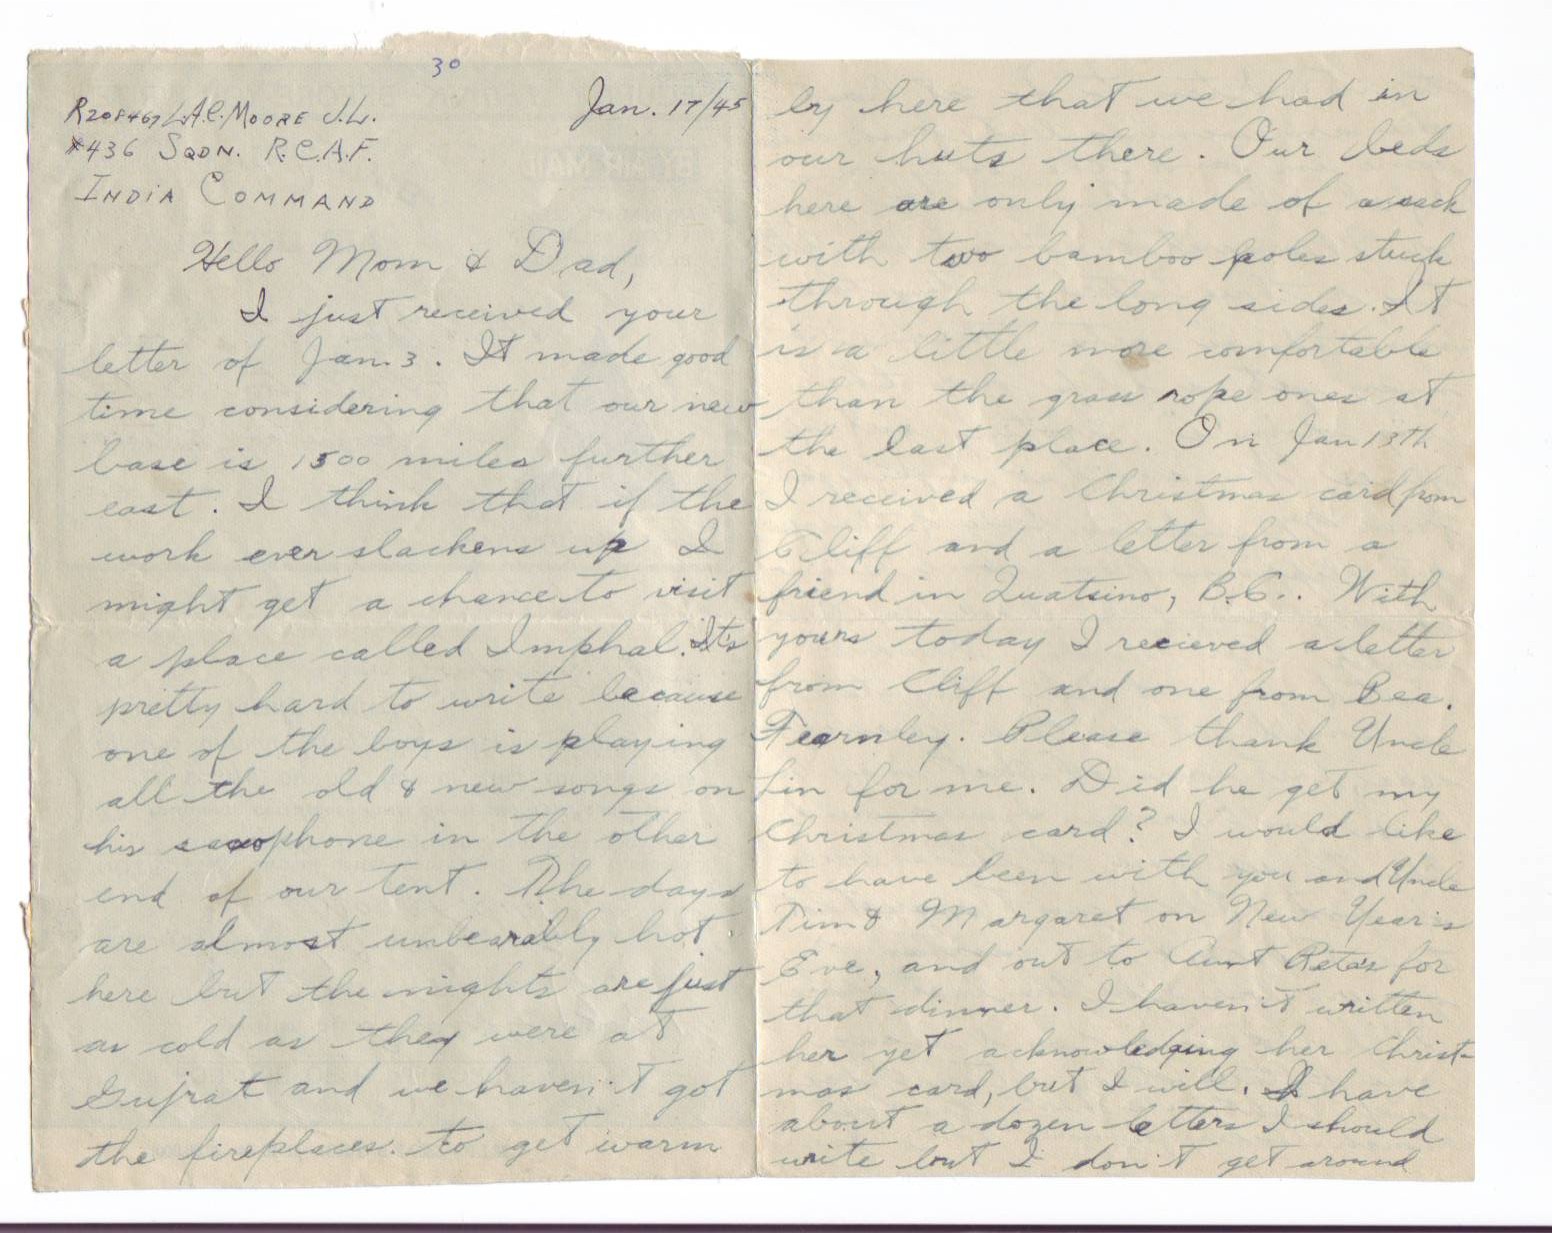 30
R208467 L.A.C. Moore J.L.
#436 Sqdn. R.C.A.F.
India Command
Jan. 17/45
Hello Mom & Dad,
I just received your
letter of Jan. 3. It made good
time considering that our new
base is 1500 miles further
east. I think that if the
work ever slackens up I
might get a chance to visit
a place called Imphal. It's
pretty hard to write because
one of the boys is playing
all the old & new songs on
his saxophone in the other
end of our tent. The days
are almost unbearably hot
here but the nights are just
as cold as they were at
Gujrat and we haven't got
the fireplaces to get warm
by here that we had in
our huts there. Our beds
here are only made of a sack
with two bamboo poles stuck
through the long sides. It
is a little more comfortable
than the grass rope ones at
the last place. On Jan 13th
I received a Christmas card from
Cliff and a letter from a
friend in Quatsino, B.C.. With
yours today I recieved a letter
from Cliff and one from Bea.
Fearnley. Please thank Uncle
Lin for me. Did he get my
Christmas card? I would like
to have been with you and Uncle
Tim & Margaret on New Year's
Eve, and out to Aunt Reta's for
that dinner. I haven't written
her yet acknowledging her Christ-
mas card, but I will. I have
about a dozen letters I should
write but I don't get around